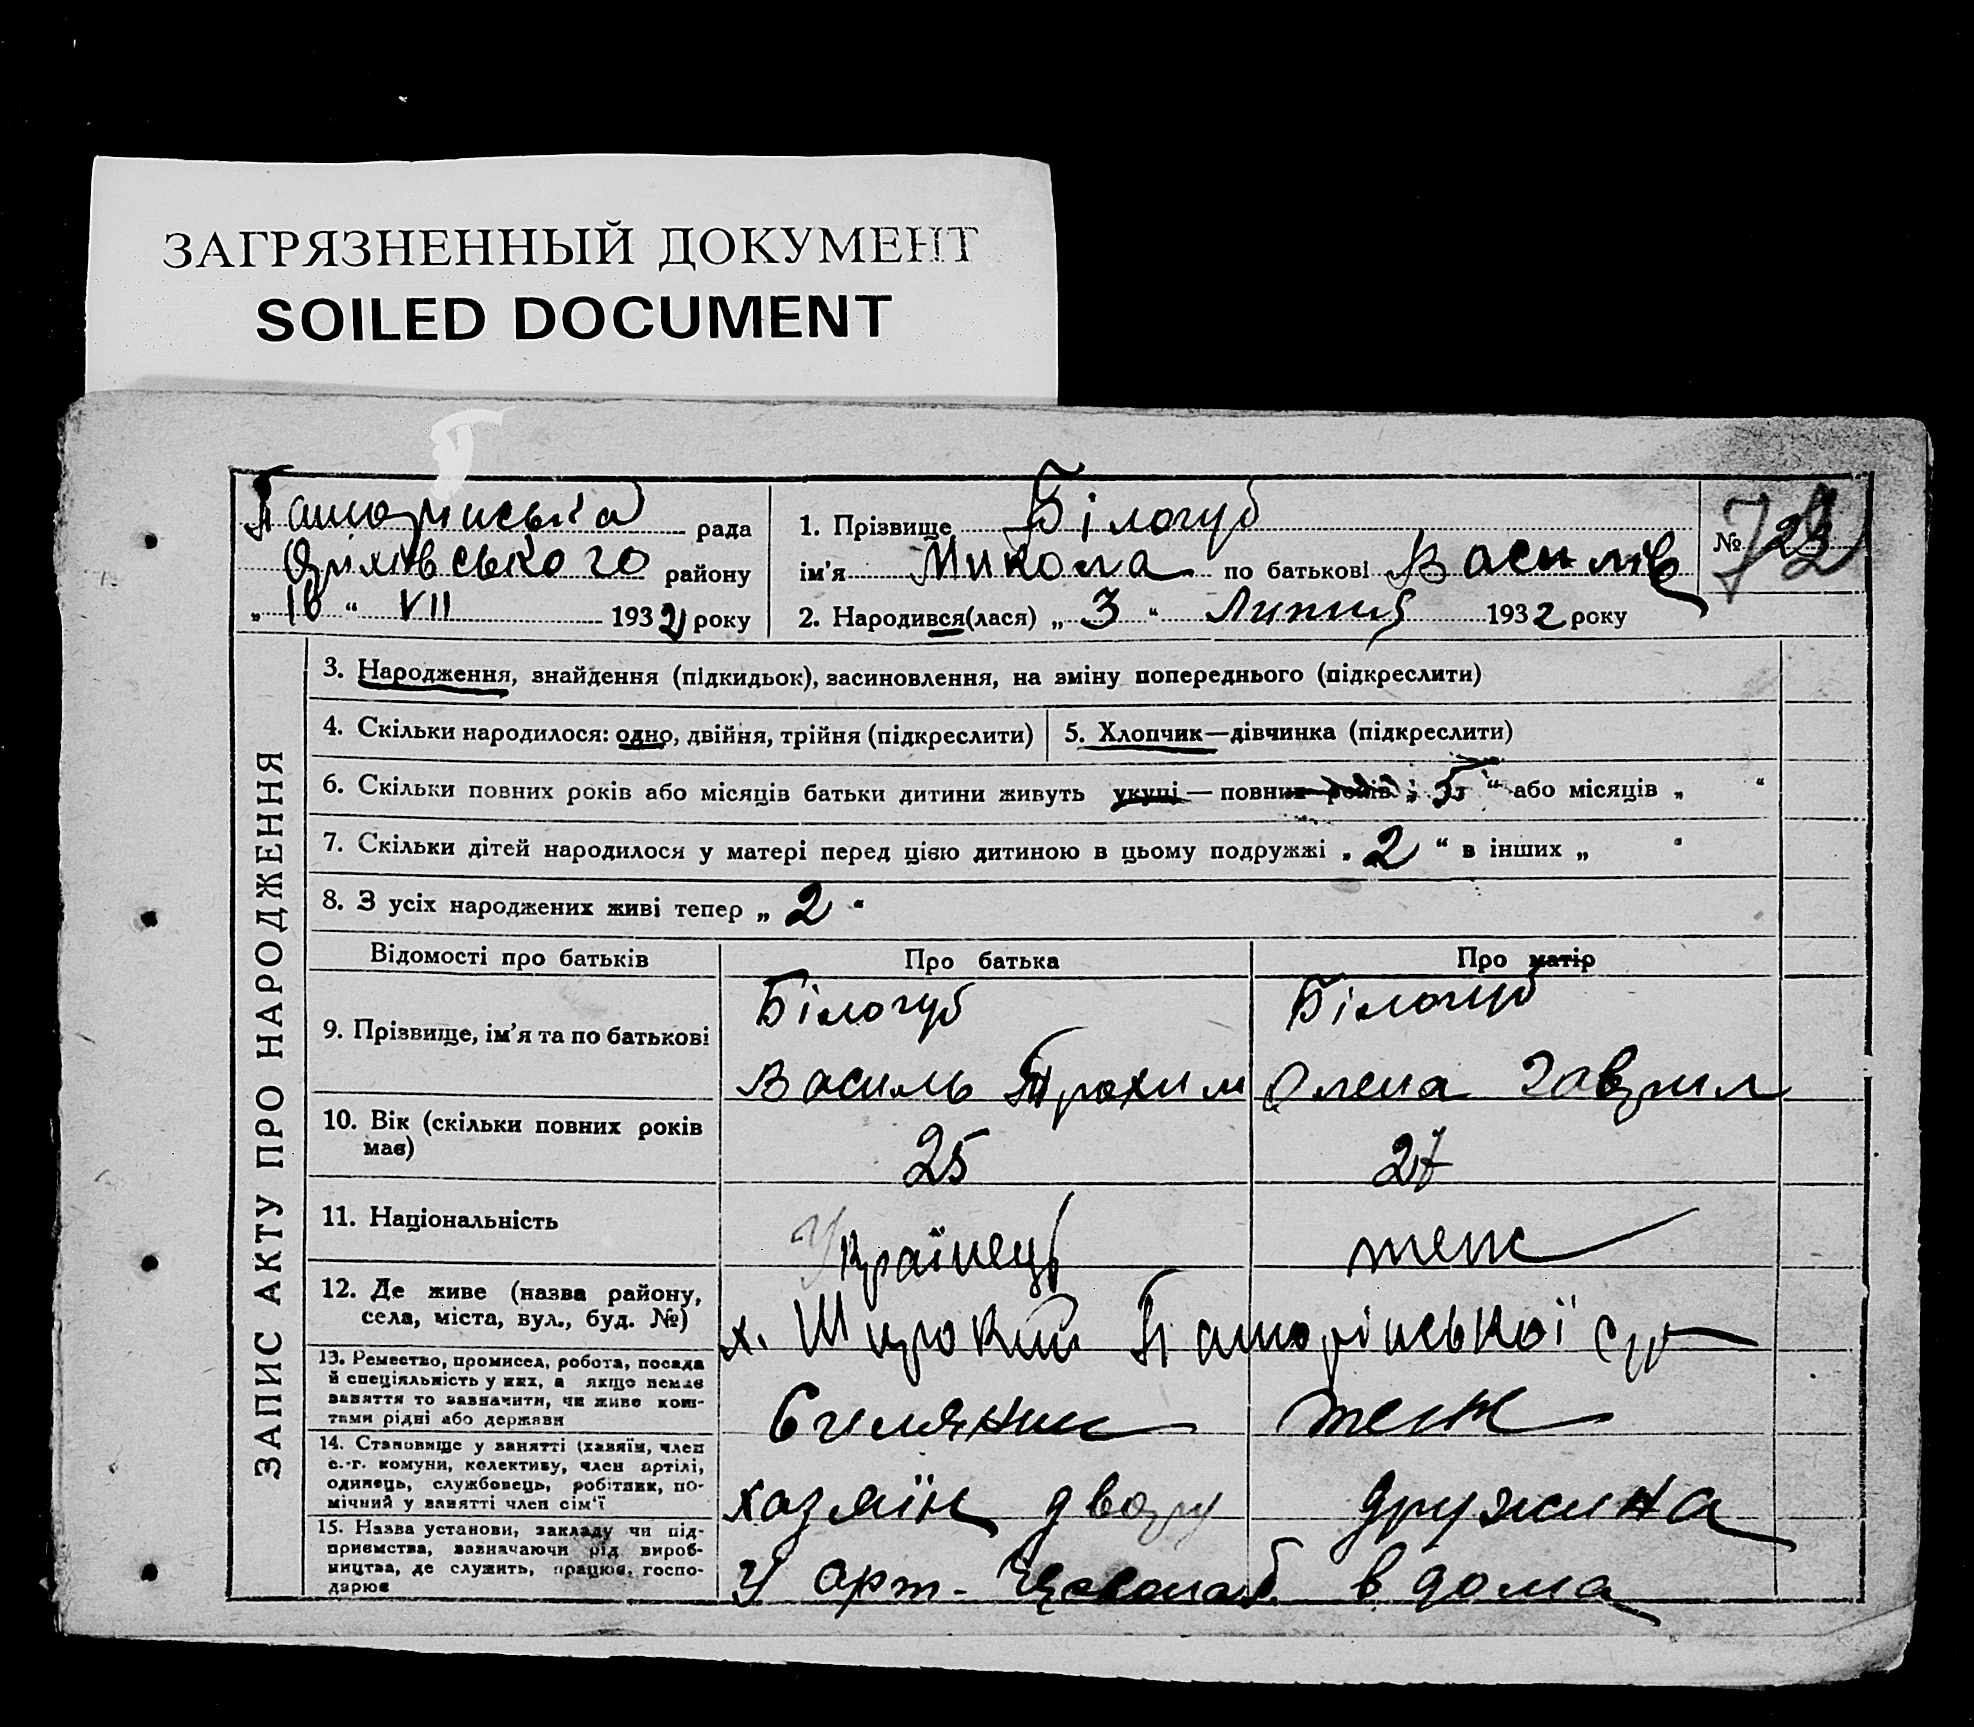 ЗАГРЯЗНЕННЫЙ ДОКУМЕНТ
SOILED DOCUMENT
рада
Оріхівського району
„ 10 “ VII 1932 року
1. Прізвище Білогуб
ім'я Микола по батькові Василів
2. Народився(лася) „ 3 “ Липня 1932 року
№
ЗАПИС АКТУ ПРО НАРОДЖЕННЯ
3. Народження, знайдення (підкидьок), засиновлення, на зміну попереднього (підкреслити)
4. Скільки народилося: одно, двійня, трійня (підкреслити)
5. Хлопчик—дівчинка (підкреслити)
6. Скільки повних років або місяців батьки дитини живуть укупі — повних років „ 5 “ або місяців „ “
7. Скільки дітей народилося у матері перед цією дитиною в цьому подружжі „ 2 “ в інших „ “
8. З усіх народжених живі тепер „ 2 “
Відомості про батьків
Про батька
Про матір
9. Прізвище, ім'я та по батькові
Білогуб
Василь Трохим
Білогуб
Олена Гаврил
10. Вік (скільки повних років
має)
25
27
11. Національність
Українець
теж
12. Де живе (назва району,
села, міста, вул., буд. №)
х. Широкий
13. Ремество, промисел, робота, посада
й спеціяльність у них, а якщо немає
заняття то зазначити, чи живе кош-
тами рідні або держави
Селянин
теж
14. Становище у занятті (хазяїн, член
с.-г. комуни, колективу, член артілі,
одинець, службовець, робітник, по-
мічний у занятті член сім'ї
хазяїн двору
дружина
15. Назва установи, закладу чи під-
приємства, зазначаючи рід вироб-
ництва, де служить, працює, госпо-
дарює
У арт.
в дома